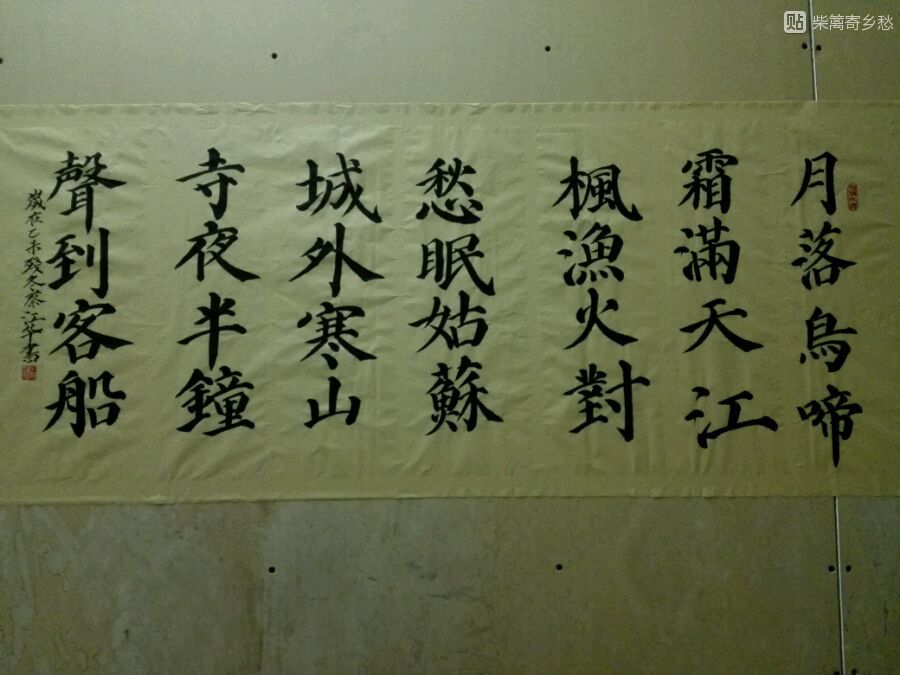 月落烏啼
霜滿天江
楓漁火對
愁眠姑蘇
城外寒山
寺夜半鐘
聲到客船
歲在乙未殘冬蔡江華書
貼 柴篱寄乡愁